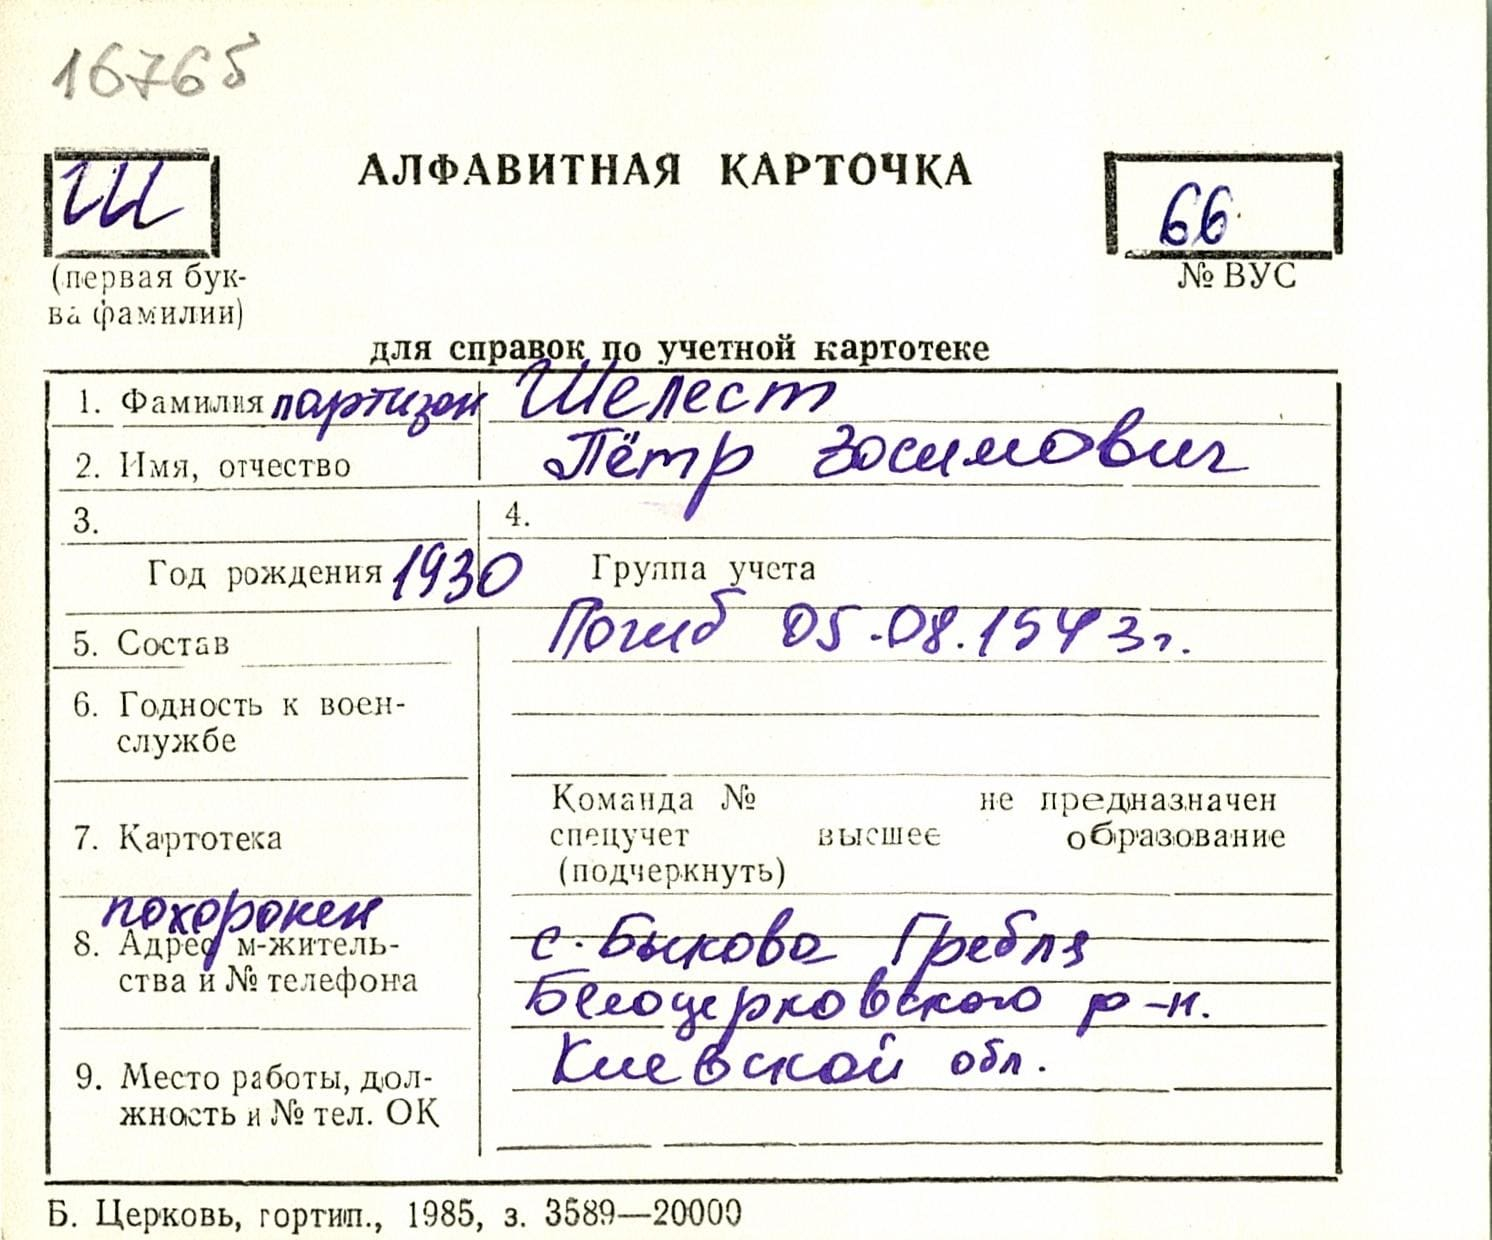 16765
Ш
АЛФАВИТНАЯ КАРТОЧКА
66
(первая бук-
ва фамилии)
№ ВУС
для справок по учетной картотеке
1. Фамилия партизан Шелест
2. Имя, отчество Пётр Зосимович
3.
4.
Год рождения 1930 Группа учета
5. Состав Погиб 05.08.1943 г.
6. Годность к воен-
службе
7. Картотека
Команда № не предназначен
спецучет высшее образование
(подчеркнуть)
похоронен
8. Адрес м-житель-
ства и № телефона
с. Быкова Гребля
Белоцерковского р-н.
Киевской обл.
9. Место работы, дол-
жность и № тел. ОК
Б. Церковь, гортип., 1985, з. 3589—20000